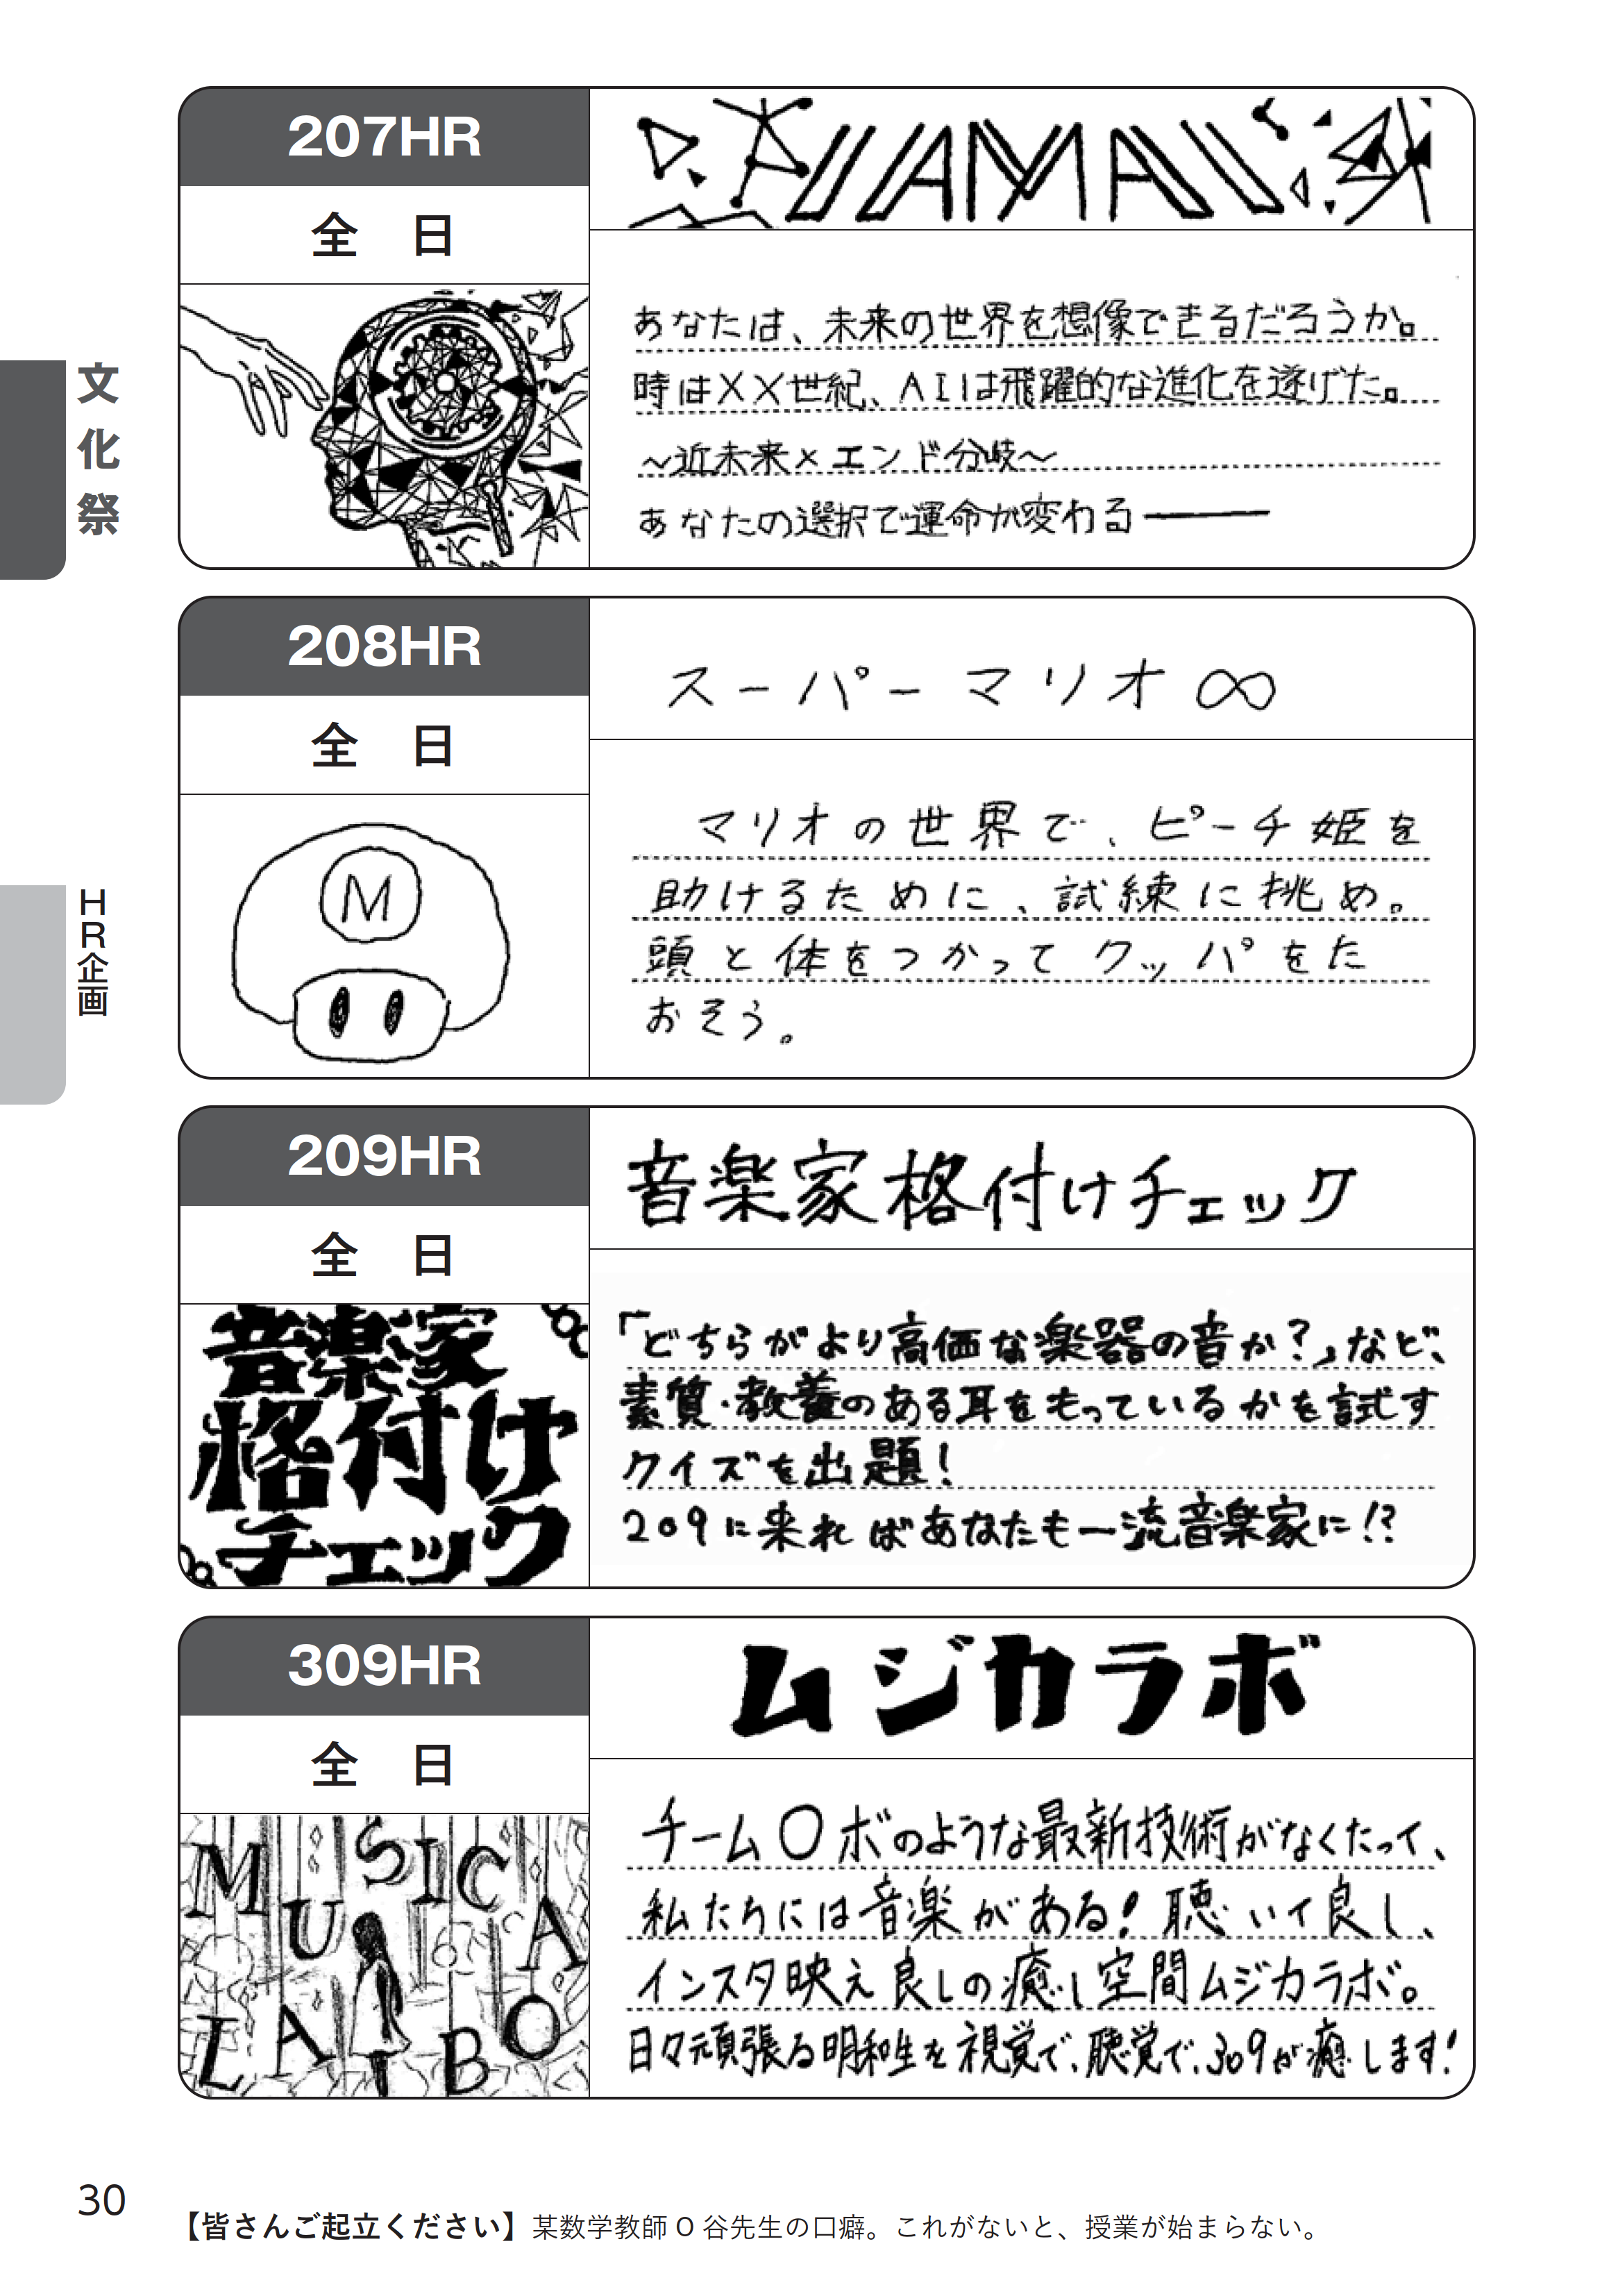 文化祭
HR企画
207HR
全 日
I AM AI
あなたは、未来の世界を想像できるだろうか。
時はXX世紀、AIは飛躍的な進化を遂げた。
～近未来×エンド分岐～
あなたの選択で運命が変わる――
208HR
全 日
M
スーパーマリオ∞
マリオの世界で、ピーチ姫を
助けるために、試練に挑め。
頭と体をつかってクッパをた
おそう。
209HR
全 日
音楽家
格付け
チェック
音楽家格付けチェック
「どちらがより高価な楽器の音か?」など、
素質・教養のある耳をもっているかを試す
クイズを出題!
209に来ればあなたも一流音楽家に!?
309HR
全 日
MUSICA
LABO
ムジカラボ
チーム〇ボのような最新技術がなくたって、
私たちには音楽がある!聴いて良し、
インスタ映え良しの癒し空間ムジカラボ。
日々頑張る明和生を視覚で、聴覚で、309が癒します!
30
【皆さんご起立ください】某数学教師O谷先生の口癖。これがないと、授業が始まらない。